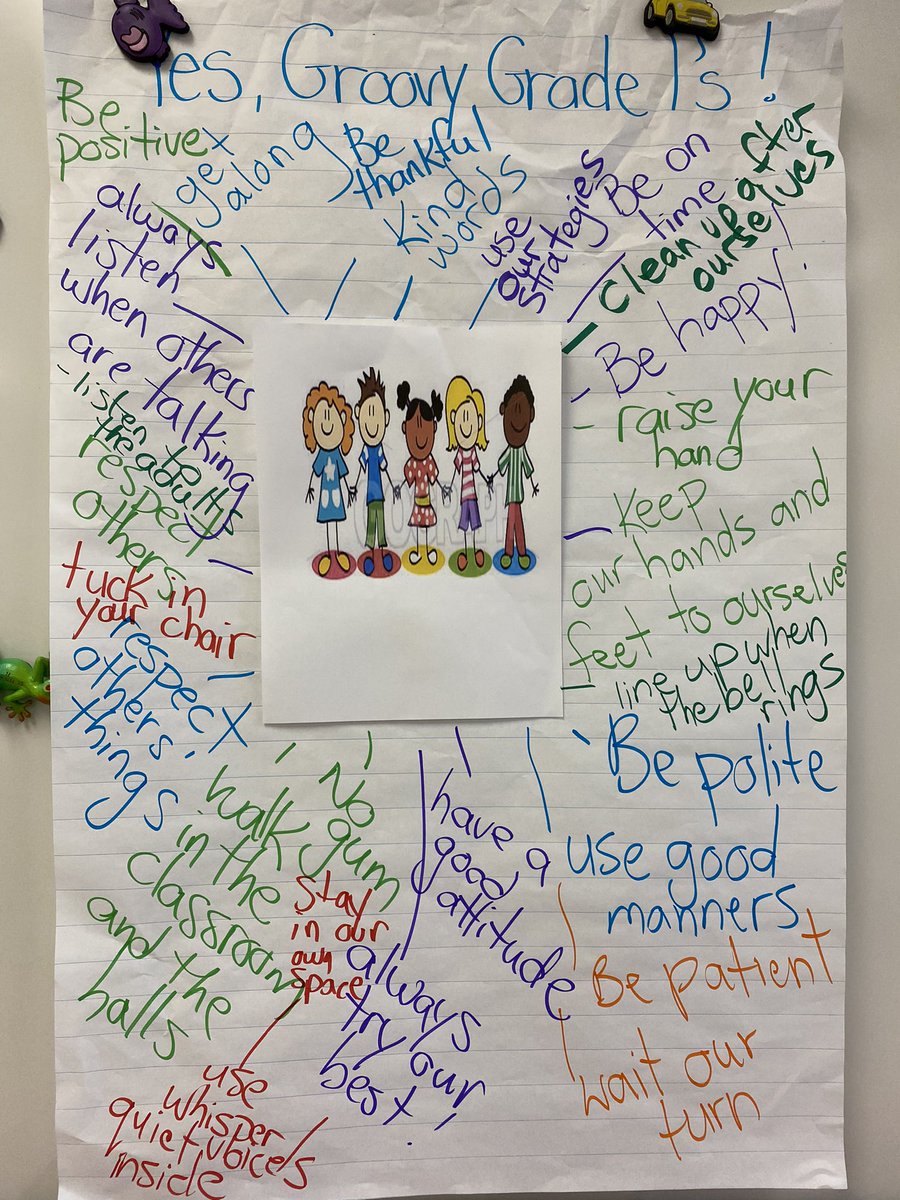 Yes, Groovy Grade 1's!
Be
positive
get
along
Be
thankful
Kind
words
use
our
strategies
Be on
time
Clean up after
ourselves
- Be happy.
- raise your
hand
- Keep
our hands and
feet to ourselves
line up when
the bell
rings
Be polite
use good
manners
Be patient
wait our
turn
have a
good
attitude
always
try our
best!
No
gum
stay
in our
own
space
walk
in the
classroom
and the
halls
use
whisper/
quiet voices
inside
always
listen
when others
are talking
- listen to
the adults
respect
others
tuck in
your chair
respect
others'
things